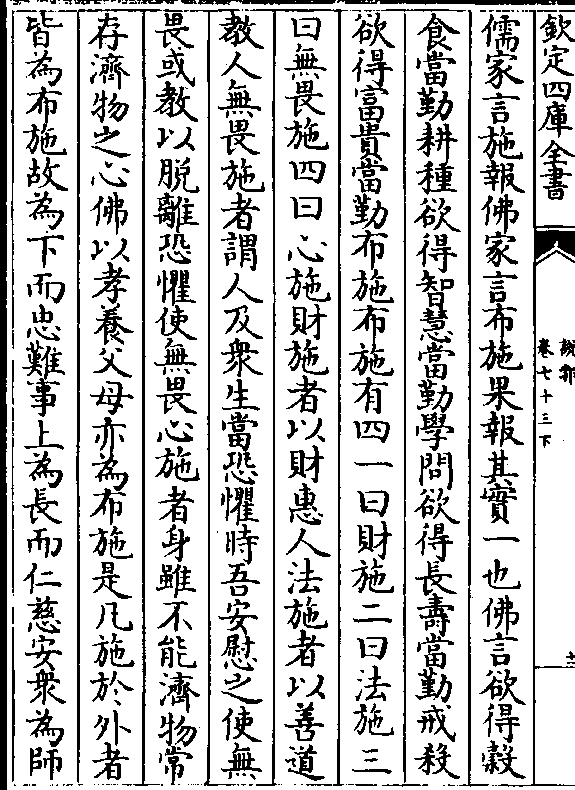 欽定四庫全書
說郛
卷七十三下
十二
儒家言施報佛家言布施果報其實一也佛言欲得穀
食當勤耕種欲得智慧當勤學問欲得長壽當勤戒殺
欲得富貴當勤布施布施有四一曰財施二曰法施三
曰無畏施四曰心施財施者以財惠人法施者以善道
教人無畏施者謂人及衆生當恐懼時吾安慰之使無
畏或教以脫離恐懼使無畏心施者身雖不能濟物常
存濟物之心佛以孝養父母亦為布施是凡施於外者
皆為布施故為下而忠難事上為長而仁慈安衆為師